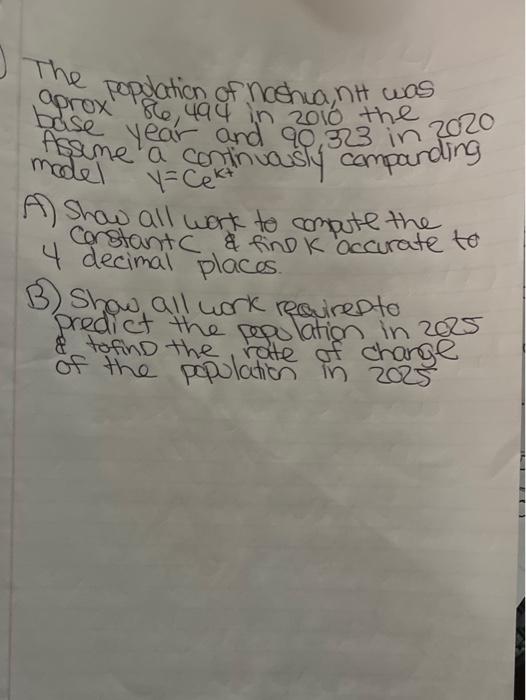 The population of Nashua, nH was
aprox 86,494 in 2010 the
base year and 90,323 in 2020
Assume a continuously compounding
model y=Ce^kt
A) Show all work to compute the
constant C & find K accurate to
4 decimal places.
B) Show all work required to
predict the population in 2025
& to find the rate of change
of the population in 2025